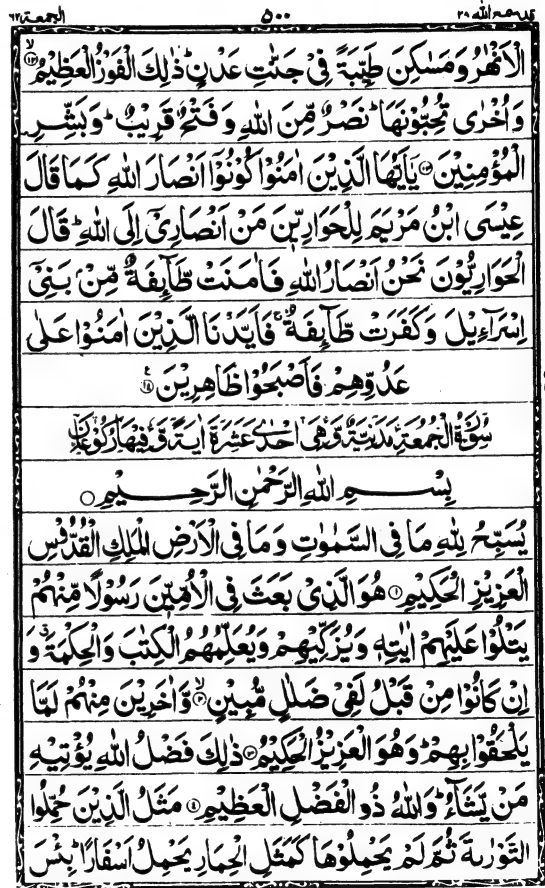 قد سمع الله ۲۸ ۵۰۰ الجمعة ۶۲
الْاَنْهٰرُ وَمَسٰكِنَ طَيِّبَةً فِیْ جَنّٰتِ عَدْنٍ ؕ ذٰلِكَ الْفَوْزُ الْعَظِيْمُ ۙ﴿۱۲﴾
وَاُخْرٰی تُحِبُّوْنَهَا ؕ نَصْرٌ مِّنَ اللهِ وَفَتْحٌ قَرِيْبٌ ؕ وَبَشِّرِ
الْمُؤْمِنِيْنَ ﴿۱۳﴾ يٰۤاَيُّهَا الَّذِيْنَ اٰمَنُوْا كُوْنُوْۤا اَنْصَارَ اللهِ كَمَا قَالَ
عِيْسَی ابْنُ مَرْيَمَ لِلْحَوَارِيّٖنَ مَنْ اَنْصَارِیْۤ اِلَی اللهِ ؕ قَالَ
الْحَوَارِيُّوْنَ نَحْنُ اَنْصَارُ اللهِ فَاٰمَنَتْ طَّآئِفَةٌ مِّنْۢ بَنِیْۤ
اِسْرَآءِيْلَ وَكَفَرَتْ طَّآئِفَةٌ ۚ فَاَيَّدْنَا الَّذِيْنَ اٰمَنُوْا عَلٰی
عَدُوِّهِمْ فَاَصْبَحُوْا ظَاهِرِيْنَ ﴿۱۴﴾ ع
سُوْرَةُ الْجُمُعَةِ مَدَنِيَّةٌ وَّهِیَ اِحْدٰی عَشَرَةَ اٰيَةً وَّفِيْهَا رُكُوْعَانِ
بِسْمِ اللهِ الرَّحْمٰنِ الرَّحِيْمِ ○
يُسَبِّحُ لِلّٰهِ مَا فِی السَّمٰوٰتِ وَمَا فِی الْاَرْضِ الْمَلِكِ الْقُدُّوْسِ
الْعَزِيْزِ الْحَكِيْمِ ﴿۱﴾ هُوَ الَّذِیْ بَعَثَ فِی الْاُمِّيّٖنَ رَسُوْلًا مِّنْهُمْ
يَتْلُوْا عَلَيْهِمْ اٰيٰتِهٖ وَيُزَكِّيْهِمْ وَيُعَلِّمُهُمُ الْكِتٰبَ وَالْحِكْمَةَ ۗ وَ
اِنْ كَانُوْا مِنْ قَبْلُ لَفِیْ ضَلٰلٍ مُّبِيْنٍ ۙ﴿۲﴾ وَّاٰخَرِيْنَ مِنْهُمْ لَمَّا
يَلْحَقُوْا بِهِمْ ؕ وَهُوَ الْعَزِيْزُ الْحَكِيْمُ ﴿۳﴾ ذٰلِكَ فَضْلُ اللهِ يُؤْتِيْهِ
مَنْ يَّشَآءُ ؕ وَاللهُ ذُو الْفَضْلِ الْعَظِيْمِ ﴿۴﴾ مَثَلُ الَّذِيْنَ حُمِّلُوا
التَّوْرٰىةَ ثُمَّ لَمْ يَحْمِلُوْهَا كَمَثَلِ الْحِمَارِ يَحْمِلُ اَسْفَارًا ؕ بِئْسَ